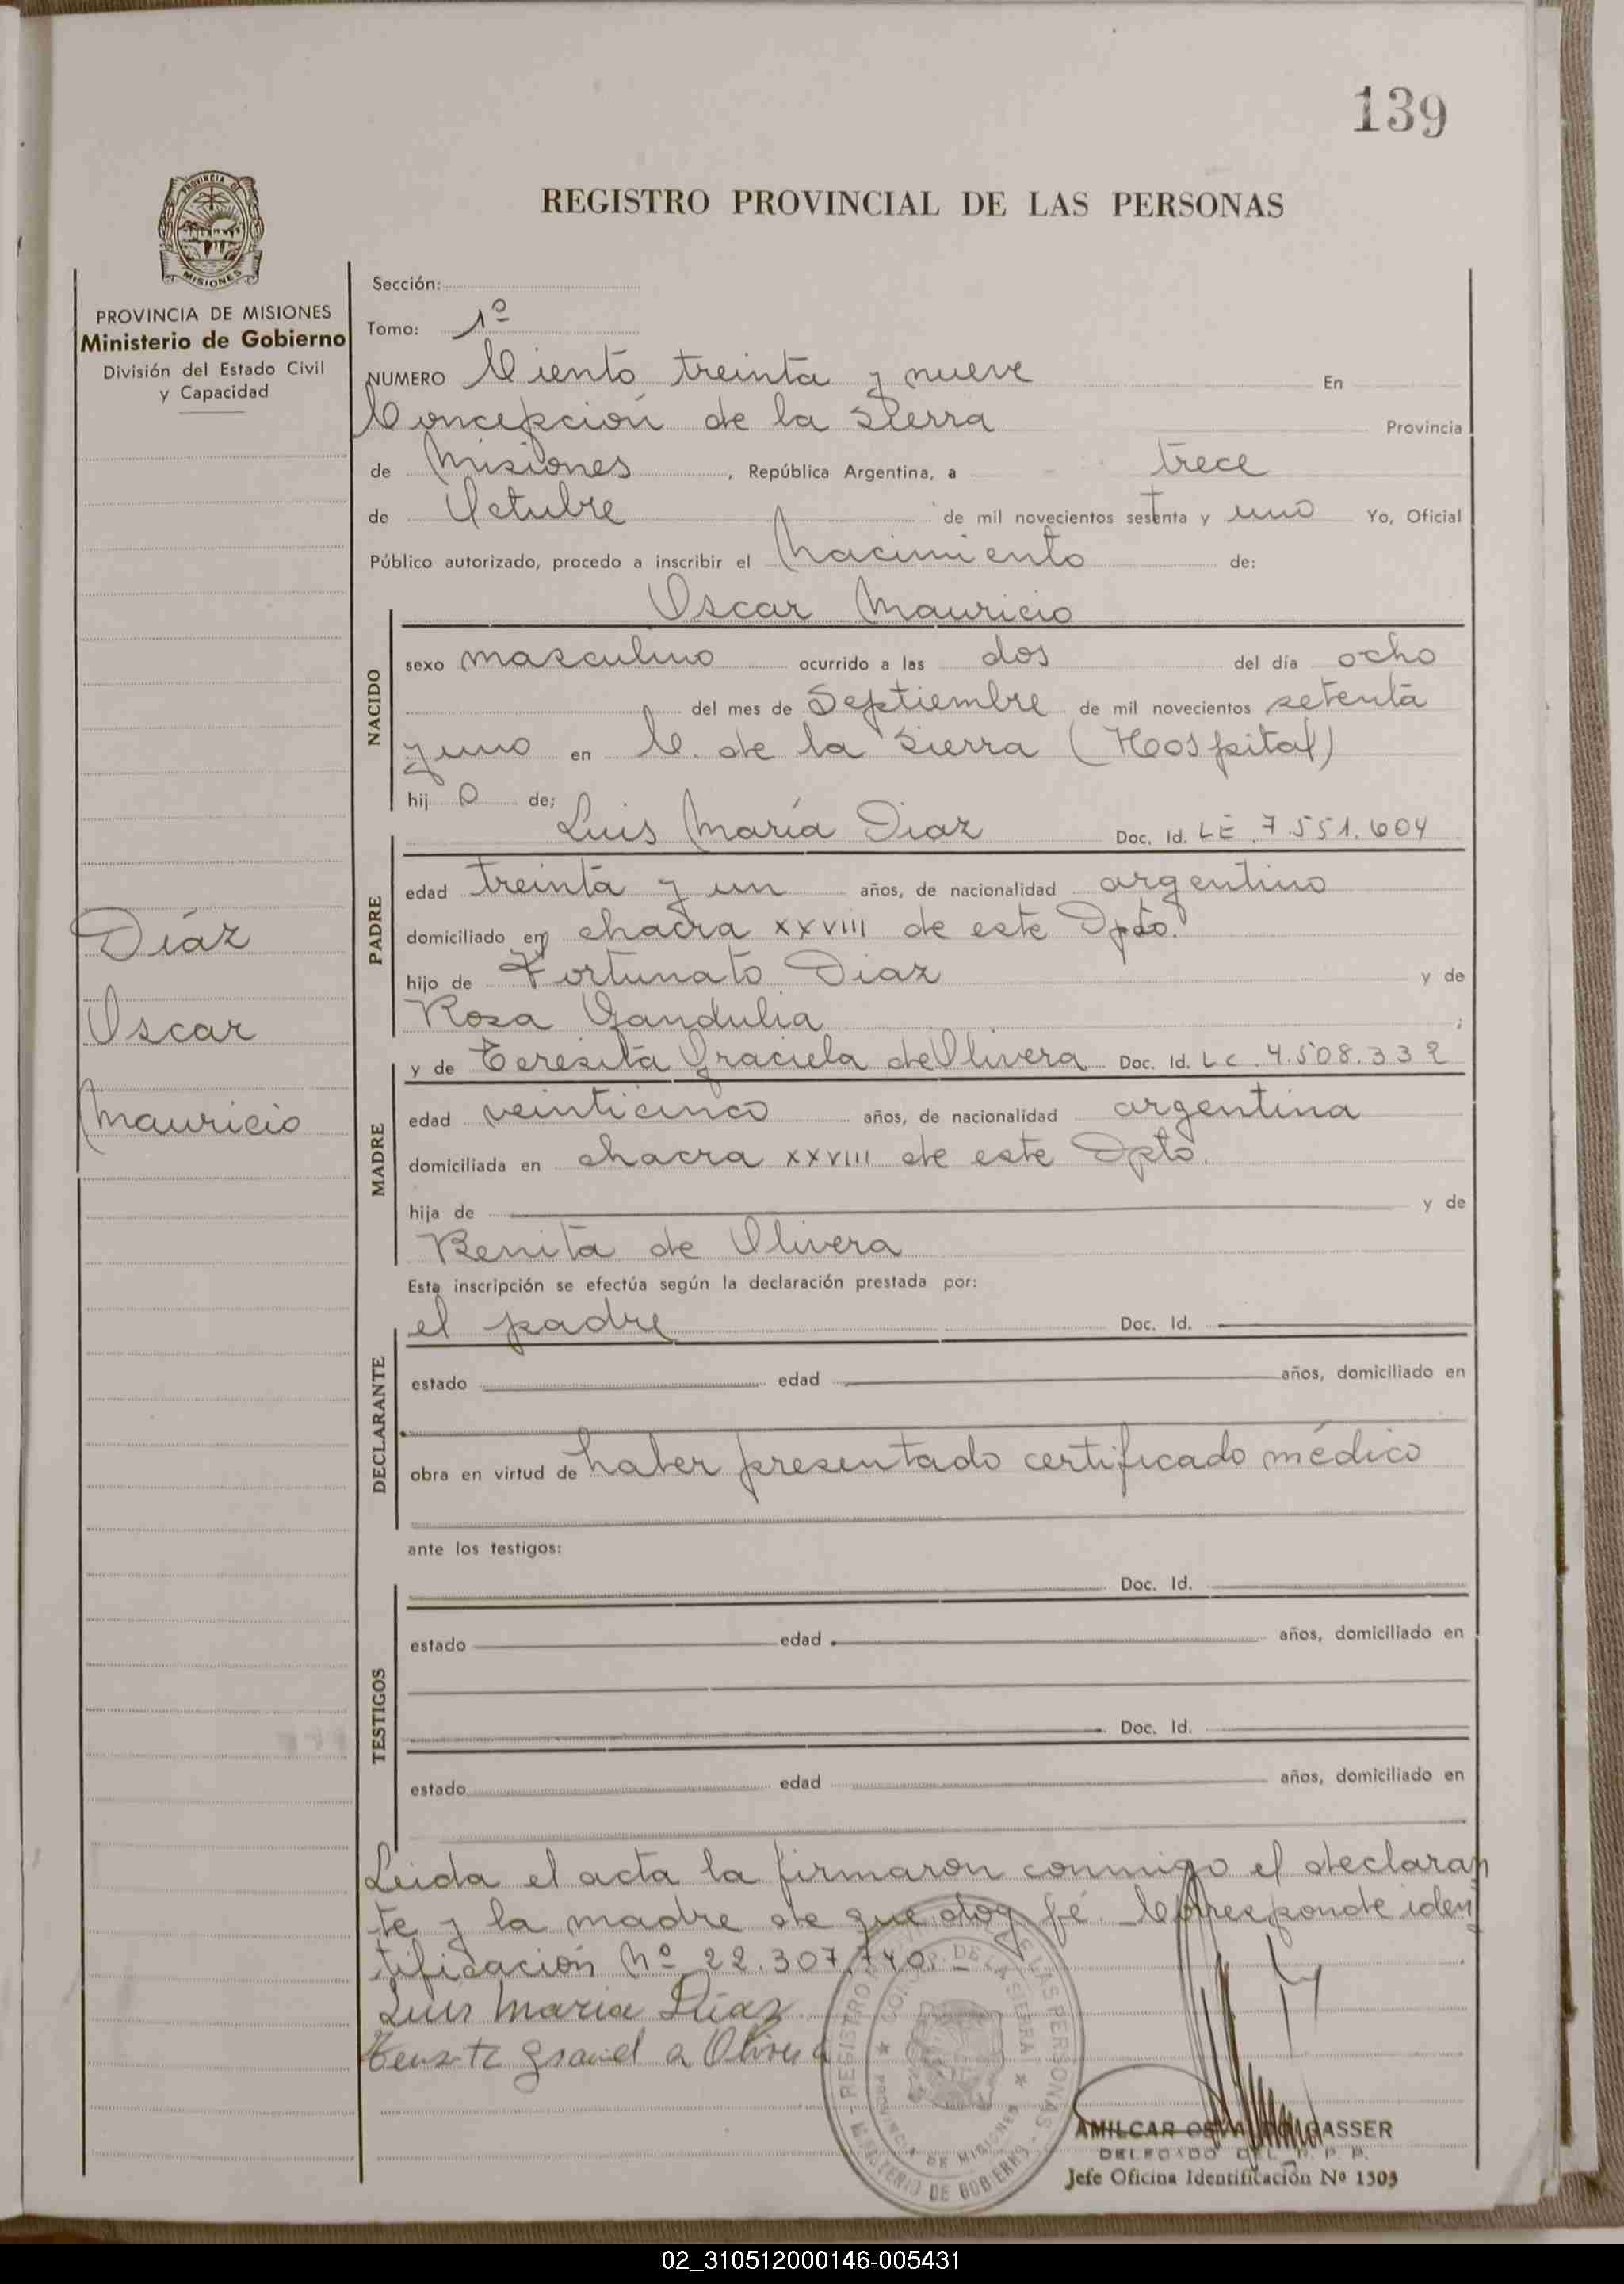 139
REGISTRO PROVINCIAL DE LAS PERSONAS
PROVINCIA DE MISIONES
Ministerio de Gobierno
División del Estado Civil
y Capacidad
Sección:
Tomo: 1º
NUMERO Ciento treinta y nueve En
Concepción de la Sierra Provincia
de Misiones, República Argentina, a trece
de Octubre de mil novecientos setenta y uno Yo, Oficial
Público autorizado, procedo a inscribir el Nacimiento de:
Oscar Mauricio
NACIDO
sexo masculino ocurrido a las dos del día ocho
del mes de Septiembre de mil novecientos setenta
y uno en C. de la Sierra (Hospital)
hij o de;
Luis María Diaz Doc. Id. LE 7.551.604
PADRE
edad treinta y un años, de nacionalidad argentino
domiciliado en chacra XXVIII de este Dpto.
hijo de Fortunato Diaz y de
Rosa Gandulia ;
y de Teresita Graciela de Olivera Doc. Id. LC. 4.508.332
MADRE
edad veinticinco años, de nacionalidad argentina
domiciliada en chacra XXVIII de este Dpto.
hija de y de
Benita de Olivera
Esta inscripción se efectúa según la declaración prestada por:
el padre Doc. Id.
DECLARANTE
estado edad años, domiciliado en
obra en virtud de haber presentado certificado médico
ante los testigos:
Doc. Id.
TESTIGOS
estado edad años, domiciliado en
Doc. Id.
estado edad años, domiciliado en
Díaz
Oscar
Mauricio
Leida el acta la firmaron conmigo el declaran
te y la madre de que doy fé. Corresponde iden
tificación Nº 22.307.740.-
Luis Maria Diaz
REGISTRO PROVINCIAL DE LAS PERSONAS
MINISTERIO DE GOBIERNO
DE LA SIERRA
PROVINCIA DE MISIONES
AMILCAR OSVALDO GASSER
DELEGADO DEL R. P. P.
Jefe Oficina Identificación Nº 1303
02_310512000146-005431